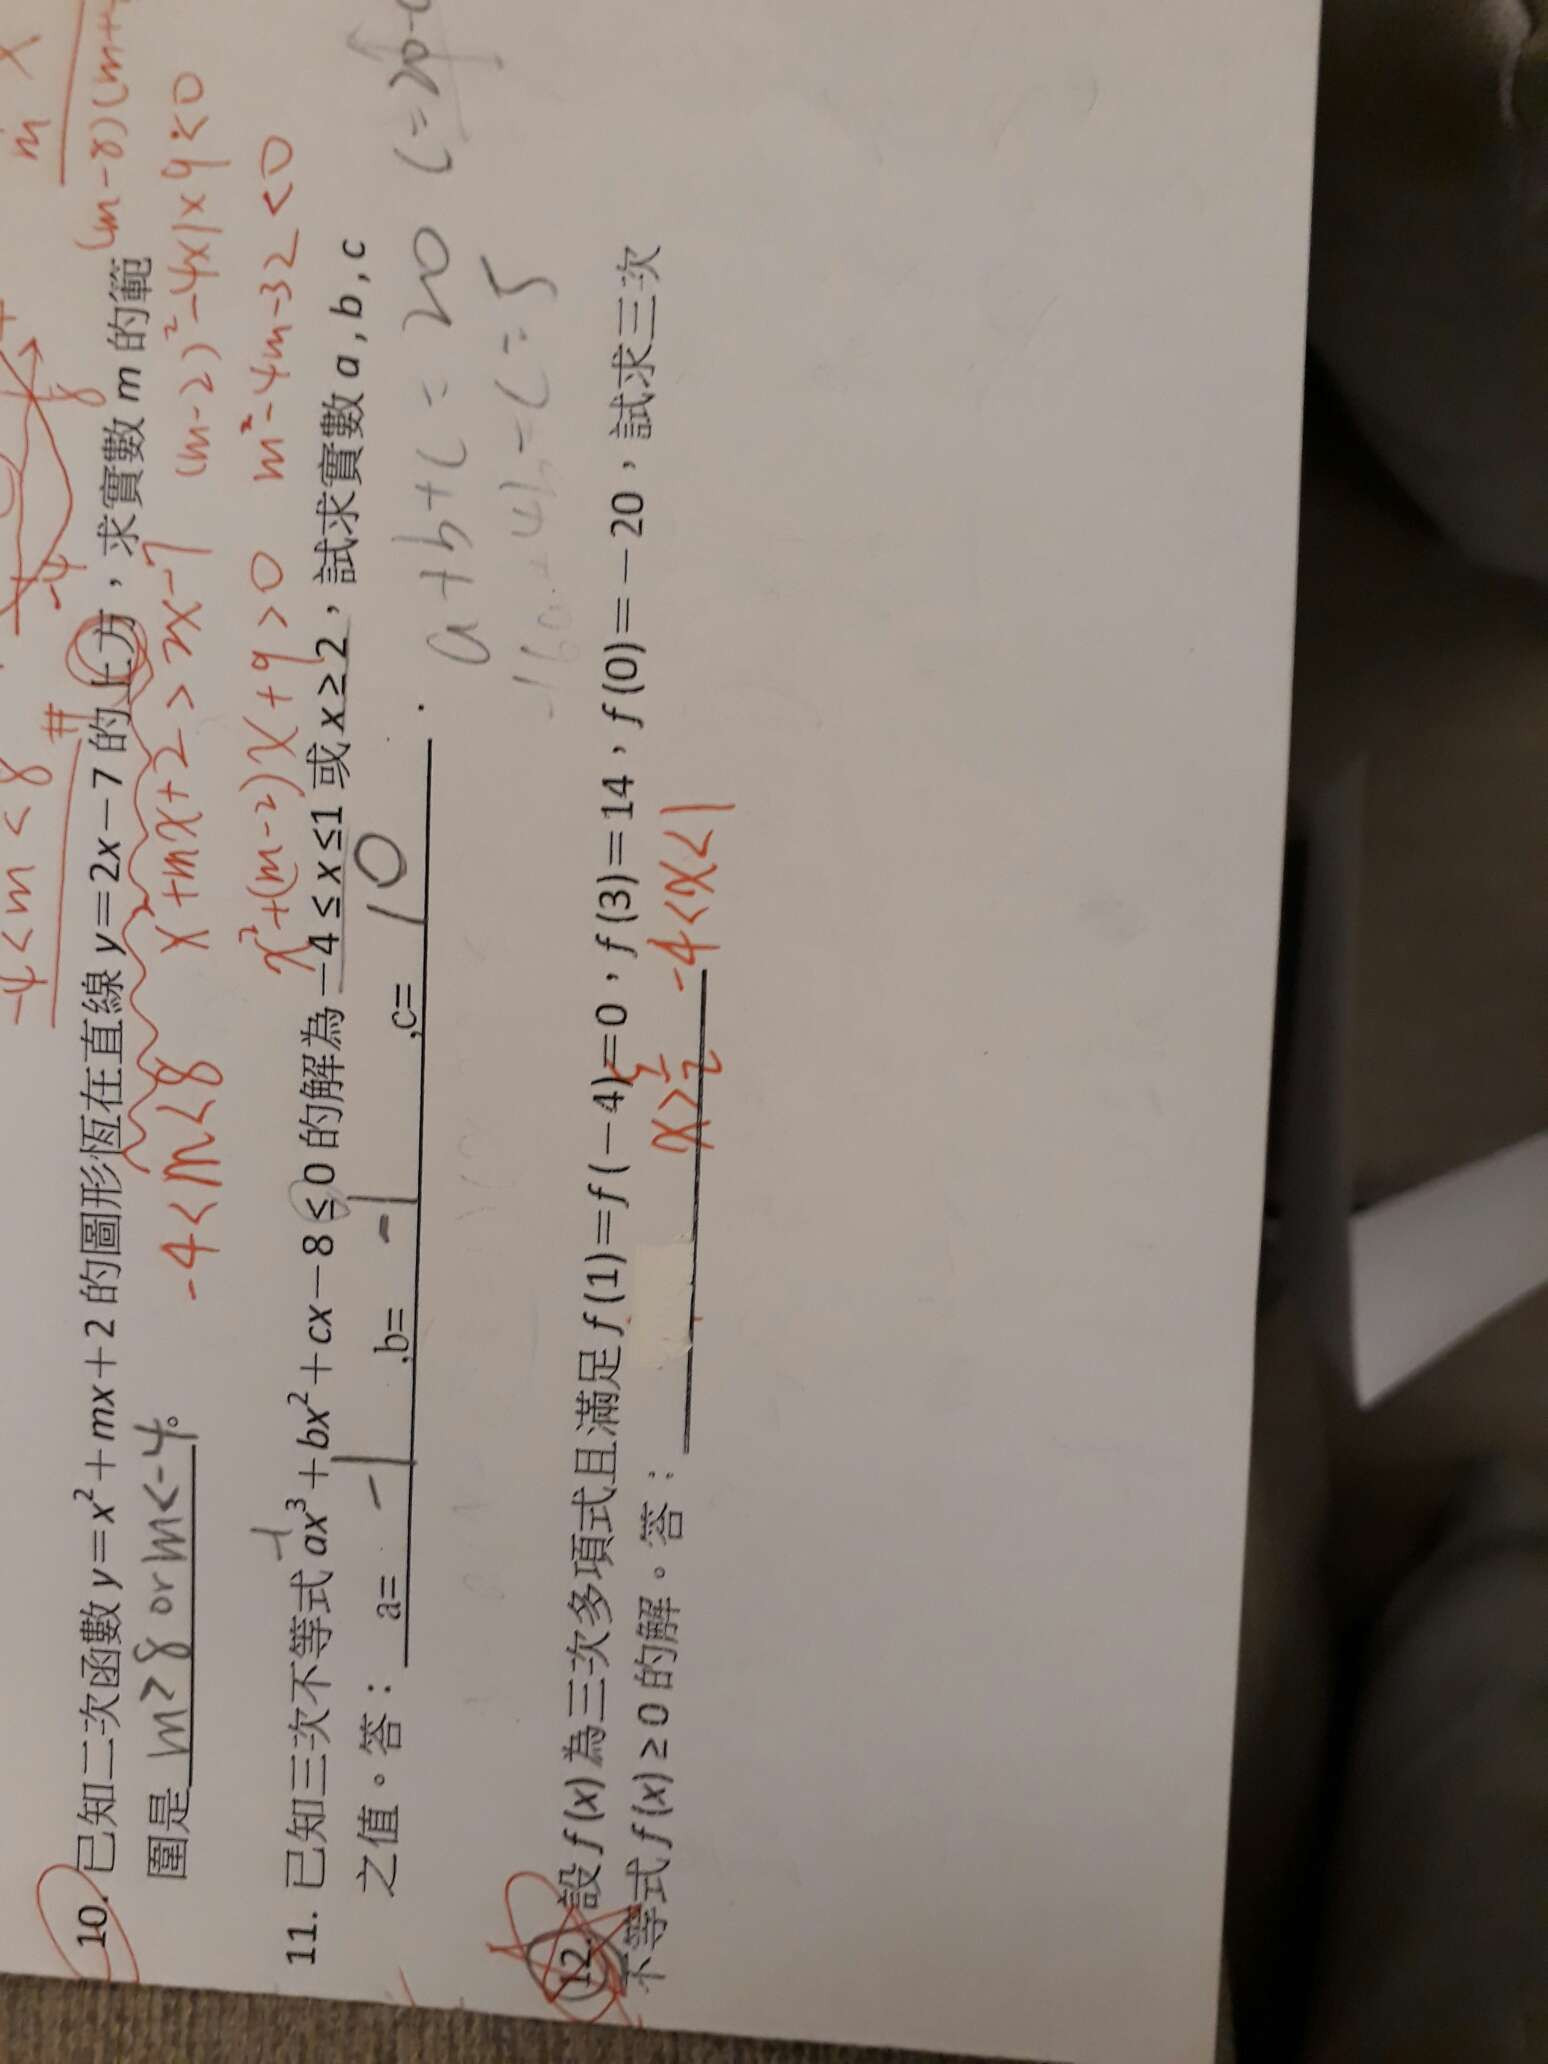 m x
-4 < m < 8 #
-4 8
(m-8)(m+
10. 已知二次函數 y=x²+mx+2 的圖形恆在直線 y=2x-7 的上方，求實數 m 的範
圍是 m≥8 or m<-4。
x+mx+2>2x-7 (m-2)²-4x1x9<0
-4<m<8
x²+(m-2)x+9>0 m²-4m-32<0
-1
11. 已知三次不等式 ax³+bx²+cx-8≤0 的解為 -4≤x≤1 或 x≥2，試求實數 a,b,c
之值。答： a= -1 ,b= -1 ,c= 10 .
a+b+c=20 c=20-
12. 設 f(x) 為三次多項式且滿足 f(1)=f(-4)=0，f(3)=14，f(0)=-20，試求三次
不等式 f(x)≥0 的解。答：
-4<x<1